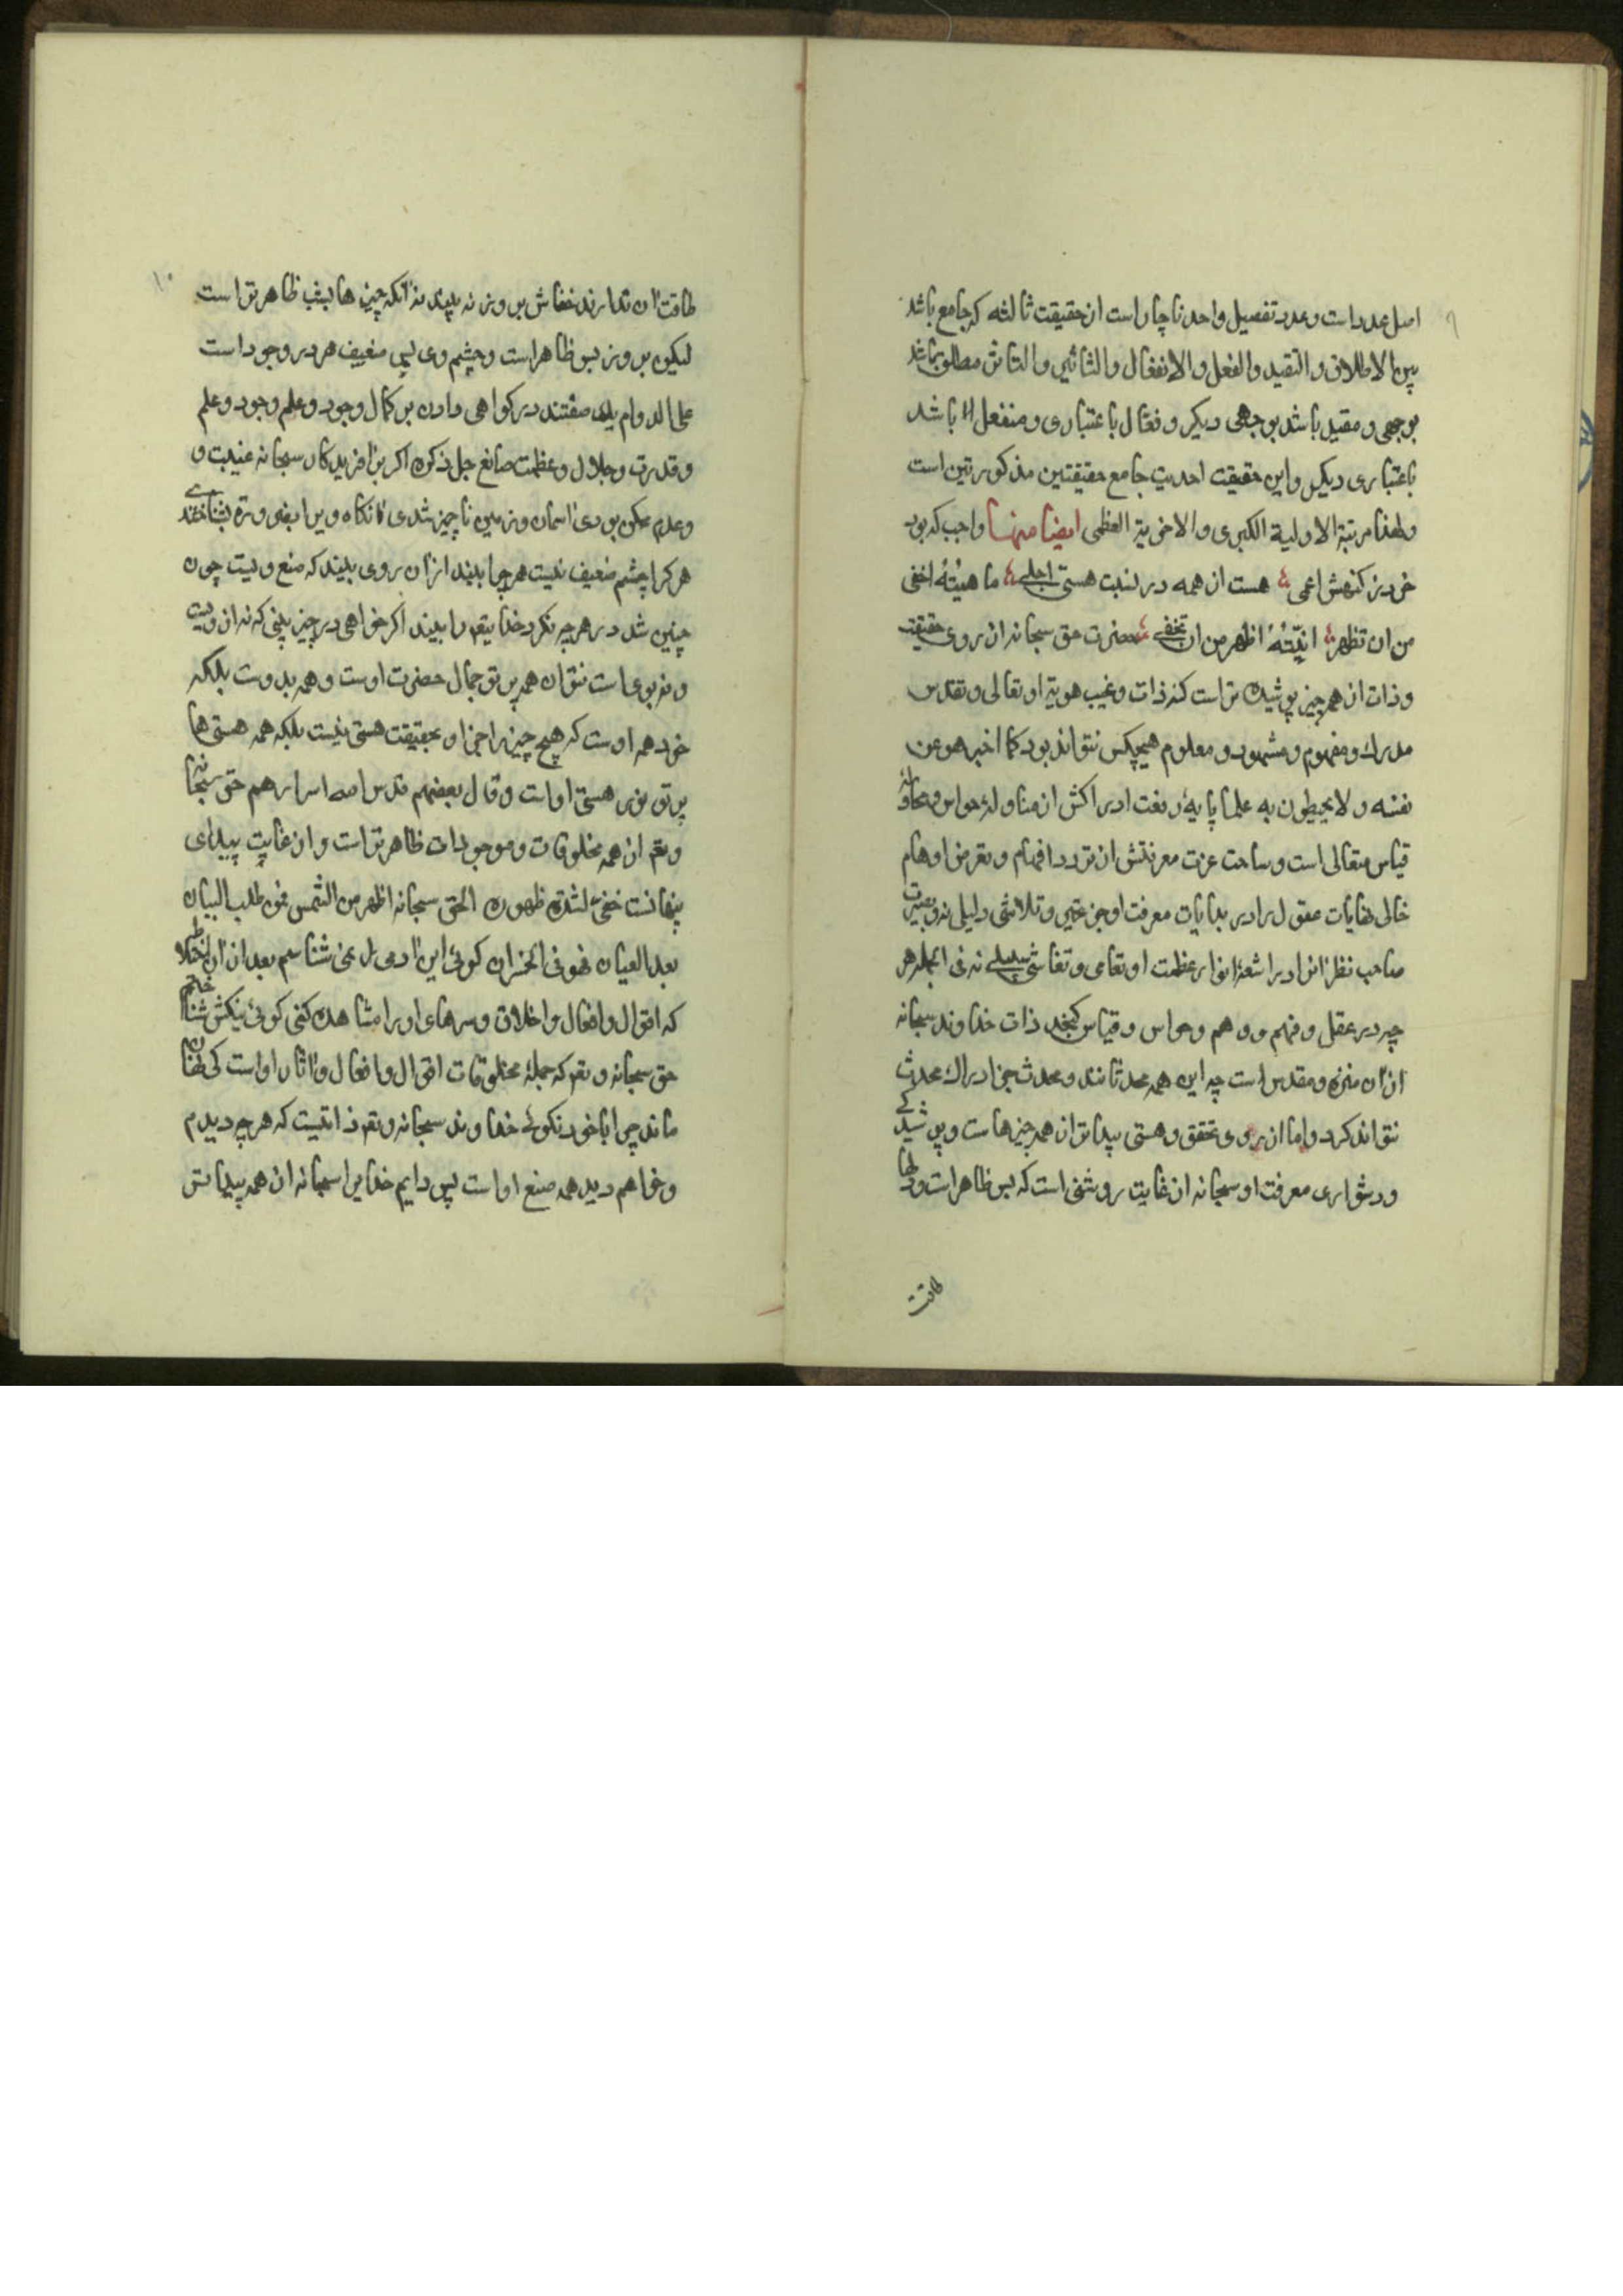 ۹
اصل عدد است و عدد تفصیل واحد ناچار است از حقیقت ثالثه که جامع باشد
بین الاطلاق و التقید والفعل و الانفعال و التأثیر و التأثر مطلق باشد
بوجهی و مقید باشد بوجهی دیکر و فعال باعتباری و منفعل باشد
باعتباری دیکر واین حقیقت احدیت جامع حقیقتین مذکورتین است
ولهذا مرتبة الاولیة الکبری و الاخریة العظمی ایضا منها واجب که بود
خرد ز کنهش اعمی هست از همه در نسبت هستی اجلی ماهیّتهُ اخفی
من ان تظهر انیّتهُ اظهر من ان تخفی حضرت حق سبحانه از روی حقیقت
و ذات از همه چیز پوشیده تر است کنه ذات و غیب هویة او تعالی و تقدس
مدرك و مفهوم و مشهود و معلوم هیچکس نتواند بود کما اخبر هو عن
نفسه و لا یحیطون به علما پایهٔ رفعت ادراکش از مناولهٔ حواس و محاولهٔ
قیاس متعالی است و ساحت عزت معرفتش از تردد افهام و تعرض اوهام
خالی نهایات عقول را در بدایات معرفت او جز تحیر و تلاشی دلیلی نه و بصیرت
صاحب نظرانرا در اشعهٔ انوار عظمت او تعامی و تغاشی سبیلی نه فی الجمله هر
چه در عقل و فهم و وهم و حواس و قیاس کنجد ذات خداوند سبحانه
از ان منزه و مقدس است چه این همه محدثانند و محدث جز ادراك محدث
نتواند کرد و اما از روی تحقق و هستی پیداتر از همه چیزهاست و پوشیدکی
و دشواری معرفت او سبحانه از غایت روشنی است که بس ظاهر است و دلها
طاقت
۱۰
طاقت ان ندارند خفاش بروز نه بیند نه انکه چیزها بشب ظاهرتر است
لیکن بروز بس ظاهر است و چشم وی بس ضعیف هر در وجود است
علی الدوام یك صفتند در کواهی دادن بر کمال وجود و علم وجود و علم
و قدرت و جلال و عظمت صانع جل ذکره اکر بر افریدکار سبحانه غیبت و
وعدم ممکن بودی اسمان و زمین ناچیز شدی انکاه ویرا بضرورة بشناختندی
هرکرا چشم ضعیف نیست هرچرا بیند از ان روی بیند که صنع ویست چون
چنین شد در هرچه نکرد خدایتعم را بیند اکر خواهی در چیز بینی که نه از ویست
و نه بوی است نتوان همه پرتو جمال حضرت اوست و همه بدوست بلکه
خود همه اوست که هیچ چیز را جز او بحقیقت هستی نیست بلکه همه هستی ها
پرتو نور هستی اواست و قال بعضهم قدس اسرارهم حق سبحانه
و تعم از همه مخلوقات و موجودات ظاهرتر است و از غایت پیدائی
پنهانست خفی لشدة ظهوره الحق سبحانه اظهر من الشمس فمن طلب البیان
بعد العیان فهو فی الخسران کوئی این ادمی را می شناسم بعد از ان اختلاطی
که اقوال و افعال و اخلاق و سرهای او را مشاهده کنی کوئی نیکش شناختم
حق سبحانه و تعم که جملهٔ مخلوقات اقوال و افعال و اثار اواست کی نهان
ماند چرا با خود نکوئی خداوند سبحانه و تعم ذاتیست که هرچه دیدم
و خواهم دید همه صنع اواست پس دایم خدایرا سبحانه از همه پیداتر